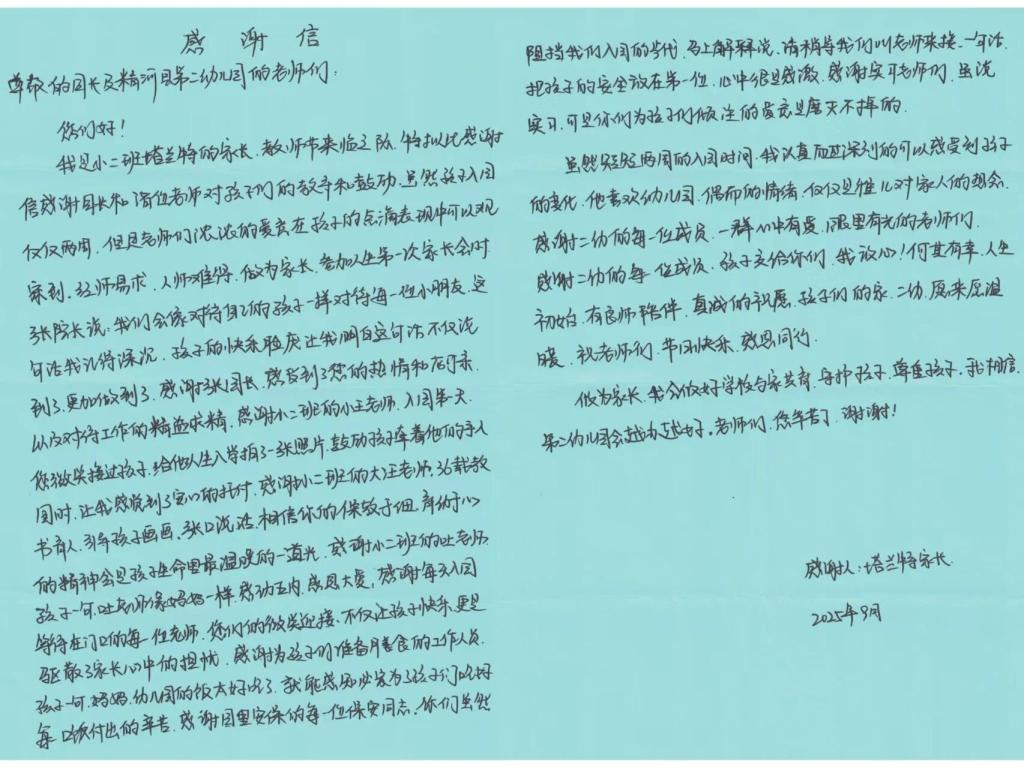 感谢信
尊敬的园长及精河县第二幼儿园的老师们：
您们好！
我是小二班塔兰特的家长，教师节来临之际，特拟此感谢
信感谢园长和诸位老师对孩子们的教导和鼓励，虽然孩子入园
仅仅两周，但是老师们浓浓的爱意在孩子的点滴表现中可以观
察到，经师易求，人师难得，做为家长，参加人生第一次家长会时
张院长说：我们会像对待自己的孩子一样对待每一位小朋友，这
句话我记得深沉，孩子的快乐程度让我明白这句话不仅说
到了，更加做到了，感谢张园长，感受到了您的热情和
以及对待工作的精益求精，感谢小二班的小王老师，入园第一天
您微笑接过孩子，给他人生入学拍了一张照片，鼓励孩子牵着他们的手入
园时，让我感觉到了安心的托付，感谢小二班的大汪老师，36载教
书育人，引导孩子画画，张口说话，相信你的保教于细，育幼于心
的精神会是孩子生命里最温暖的一道光，感谢小二班的吐老师，
孩子一句，吐老师像妈妈一样，感动五内，感恩大爱，感谢每天入园
等待在门口的每一位老师，您们的微笑迎接，不仅让孩子快乐，更是
驱散了家长心中的担忧，感谢为孩子们准备膳食的工作人员，
孩子一句，妈妈，幼儿园的饭太好吃了，就能感知必定为了孩子们吃好
每口饭付出的辛苦，感谢园里安保的每一位保安同志，你们虽然
阻挡我们入园的步伐，马上解释说，请稍等我们叫老师来接，一句话
把孩子的安全放在第一位，心中很是感激，感谢实习老师们，虽说
实习，可是你们为孩子们倾注的爱意是磨灭不掉的.
虽然短短两周的入园时间，我认真而又深刻的可以感受到孩子
的变化，他喜欢幼儿园，偶而的情绪，仅仅是雏儿对家人的想念，
感谢二幼的每一位成员，一群心中有爱，眼里有光的老师们.
感谢二幼的每一位成员，孩子交给你们，我放心！何其有幸，人生
初始，有良师陪伴，真诚的祝愿，孩子们的家，二幼，愿来愿温
暖，祝老师们，节日快乐，感恩同行.
做为家长，我会做好学校与家共育，守护孩子，尊重孩子，我相信
第二幼儿园会越办越好，老师们，您辛苦了，谢谢！
感谢人：塔兰特家长
2025年9月